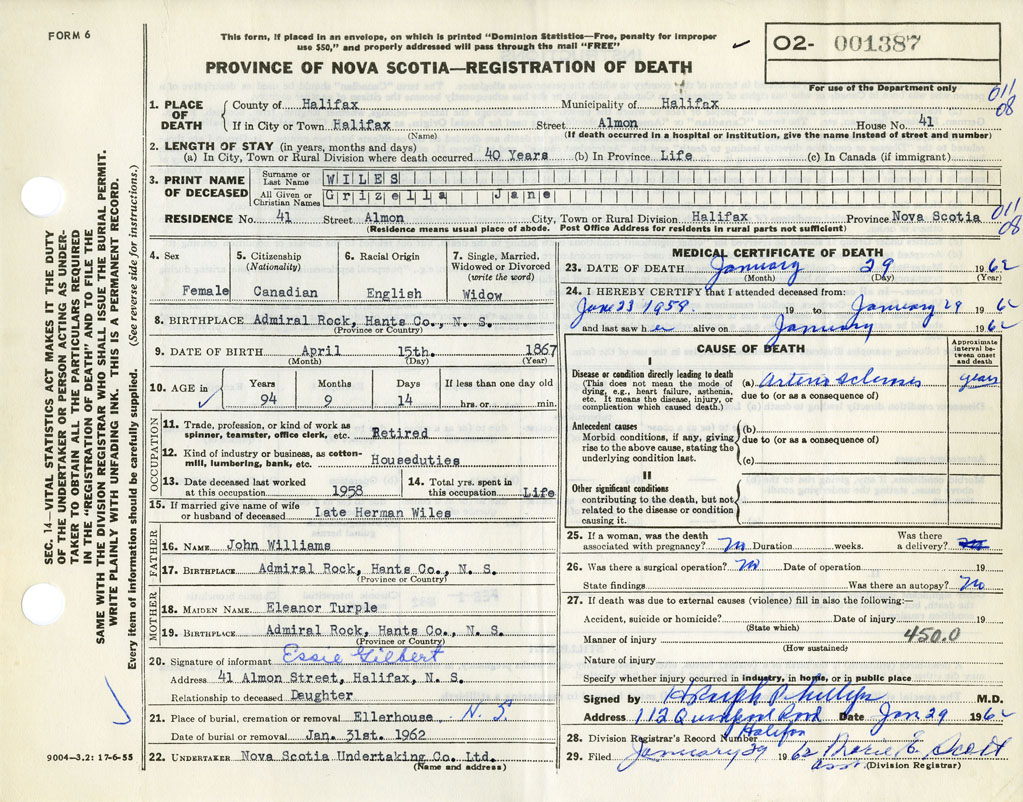 FORM 6
This form, if placed in an envelope, on which is printed "Dominion Statistics—Free, penalty for improper
use $50," and properly addressed will pass through the mail "FREE"
PROVINCE OF NOVA SCOTIA—REGISTRATION OF DEATH
02- 001387
For use of the Department only
011
08
SEC. 14—VITAL STATISTICS ACT MAKES IT THE DUTY
OF THE UNDERTAKER OR PERSON ACTING AS UNDER-
TAKER TO OBTAIN ALL THE PARTICULARS REQUIRED
IN THE "REGISTRATION OF DEATH" AND TO FILE THE
SAME WITH THE DIVISION REGISTRAR WHO SHALL ISSUE THE BURIAL PERMIT.
WRITE PLAINLY WITH UNFADING INK. THIS IS A PERMANENT RECORD.
Every item of information should be carefully supplied. (See reverse side for instructions.)
1. PLACE OF DEATH County of Halifax Municipality of Halifax
If in City or Town Halifax Street Almon House No. 41
(Name) (If death occurred in a hospital or institution, give the name instead of street and number)
2. LENGTH OF STAY (in years, months and days)
(a) In City, Town or Rural Division where death occurred 40 Years (b) In Province Life (c) In Canada (if immigrant)
3. PRINT NAME OF DECEASED Surname or Last Name WILES
All Given or Christian Names Grizella Jane
RESIDENCE No. 41 Street Almon City, Town or Rural Division Halifax Province Nova Scotia
011
08
(Residence means usual place of abode. Post Office Address for residents in rural parts not sufficient)
4. Sex Female
5. Citizenship (Nationality) Canadian
6. Racial Origin English
7. Single, Married, Widowed or Divorced (write the word) Widow
8. BIRTHPLACE Admiral Rock, Hants Co., N. S.
(Province or Country)
9. DATE OF BIRTH April 15th. 1867
(Month) (Day) (Year)
10. AGE in Years Months Days If less than one day old
94 9 14 hrs. or min.
OCCUPATION
11. Trade, profession, or kind of work as spinner, teamster, office clerk, etc. Retired
12. Kind of industry or business, as cotton-mill, lumbering, bank, etc. Houseduties
13. Date deceased last worked at this occupation 1958
14. Total yrs. spent in this occupation Life
15. If married give name of wife or husband of deceased Late Herman Wiles
FATHER
16. NAME John Williams
17. BIRTHPLACE Admiral Rock, Hants Co., N. S.
(Province or Country)
MOTHER
18. MAIDEN NAME Eleanor Turple
19. BIRTHPLACE Admiral Rock, Hants Co., N. S.
(Province or Country)
20. Signature of informant Essie Gilbert
Address 41 Almon Street, Halifax, N. S.
Relationship to deceased Daughter
21. Place of burial, cremation or removal Ellerhouse N. S.
Date of burial or removal Jan. 31st. 1962
22. UNDERTAKER Nova Scotia Undertaking Co. Ltd.
(Name and address)
9004—3.2: 17-6-55
MEDICAL CERTIFICATE OF DEATH
23. DATE OF DEATH January 29 1962
(Month) (Day) (Year)
24. I HEREBY CERTIFY that I attended deceased from:
June 23 1958 19 to January 29 1962
and last saw her alive on January 1962
CAUSE OF DEATH
Approximate interval between onset and death
I
Disease or condition directly leading to death
(This does not mean the mode of dying, e.g., heart failure, asthenia, etc. It means the disease, injury, or complication which caused death.)
(a) Arterio sclerosis years
due to (or as a consequence of)
Antecedent causes
Morbid conditions, if any, giving rise to the above cause, stating the underlying condition last.
(b)
due to (or as a consequence of)
(c)
II
Other significant conditions
contributing to the death, but not related to the disease or condition causing it.
25. If a woman, was the death associated with pregnancy? No Duration weeks. Was there a delivery?
26. Was there a surgical operation? No Date of operation 19
State findings Was there an autopsy? No
27. If death was due to external causes (violence) fill in also the following:—
Accident, suicide or homicide? Date of injury 19
(State which)
450.0
Manner of injury
(How sustained)
Nature of injury
Specify whether injury occurred in industry, in home, or in public place
Signed by H Ralph Phillips M.D.
Address 112 Quinpool Road Date Jan 29 1962
Halifax
28. Division Registrar's Record Number
29. Filed January 29 1962 Marie E. Scott
asst. (Division Registrar)